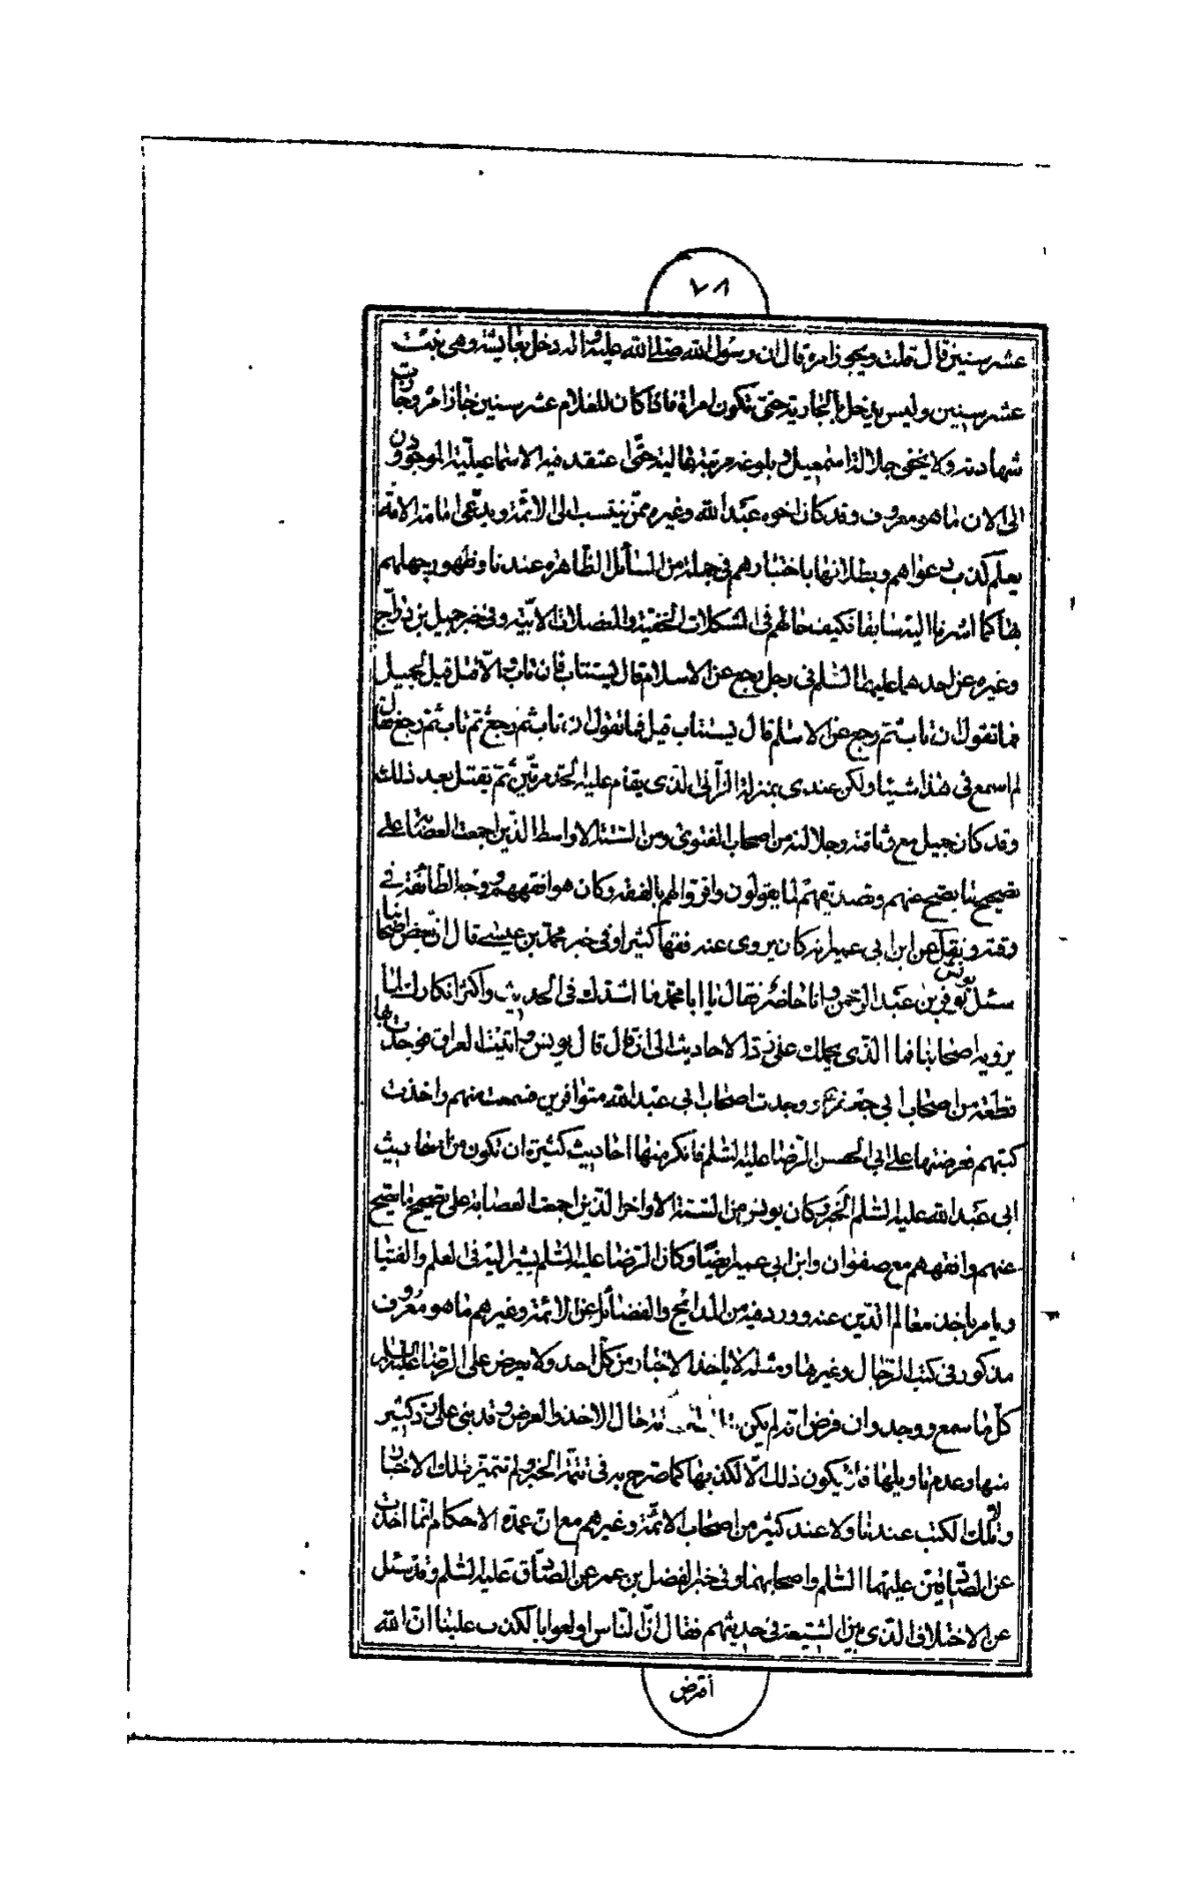 ٧٨
عشر سنين قال قلت ويجوز امره قال ان رسول الله صلى الله عليه واله دخل بعايشة وهى بنت
عشر سنين وليس يدخل بالجارية حتى تكون امراة فاذا كان للغلام عشر سنين جاز امره وجازت
شهادته ولا يخفى جلالة اسمعيل وبلوغه مرتبة عالية حتى اعتقد فيه الاسماعيلية الموجودون
الى الان ما هو معروف وقد كان اخوه عبد الله وغيره ممن ينتسب الى الائمة ويدعى امامة الامة
يعلم كذب دعواهم وبطلانها باختبارهم فى جملة من المسائل الظاهرة عندنا وظهور جهلهم
بها كما اشرنا اليه سابقا فكيف حالهم فى المشكلات الخفية والمعضلات الابية وفى خبر جميل بن دراج
وغيره عن احدهما عليهما السلم فى رجل رجع عن الاسلام قال يستتاب فان تاب والا قتل قيل لجميل
فما تقول ان تاب ثم رجع عن الاسلم قال يستتاب قيل فما تقول ان تاب ثم رجع ثم تاب ثم رجع فقال
لم اسمع فى هذا شيئا ولكن عندى بمنزلة الزانى الذى يقام عليه الحد مرتين ثم يقتل بعد ذلك
وقد كان جميل مع وثاقته وجلالته من اصحاب الفتوى ومن الستة الاواسط الذين اجمعت العصابة على
تصحيح ما يصح عنهم وتصديقهم لما يقولون واقروا لهم بالفقه وكان هو افقههم ووجه الطائفة فى
وقته ونقل عن ابن ابى عمير انه كان يروى عنه فقها كثيرا وفى خبر محمد بن عيسى قال ان بعض اصحابنا
سئل يونس بن عبد الرحمن وانا حاضر فقال يا ابا محمد ما اشدك فى الحديث واكثر انكارك لما
يرويه اصحابنا فما الذى يحملك على رد الاحاديث الى ان قال قال يونس وافيت العراق فوجدت بها
قطعة من اصحاب ابى جعفر ع ووجدت اصحاب ابى عبد الله متوافرين فسمعت منهم واخذت
كتبهم فعرضتها على ابى الحسن الرضا عليه السلم فانكر منها احاديث كثيرة ان تكون من احاديث
ابى عبد الله عليه السلم الخبر وكان يونس من الستة الاواخر الذين اجمعت العصابة على تصحيح ما يصح
عنهم وافقههم مع صفوان وابن ابى عمير ايضا وكان الرضا عليه السلم يشير اليه فى العلم والفتيا
ويامر باخذ معالم الدين عنه وورد فيه من المدايح والفضائل عن الائمة وغيرهم ما هو معروف
مذكور فى كتب الرجال وغيرها ومثله لا ياخذ الاخبار من كل احد ولا يعرض على الرضا عليه السلم
كل ما سمع ووجد وان فرض انه لم يكن حال الاخذ والعرض وقد بنى على رد كثير
منها وعدم تاويلها فلا يكون ذلك الا لكذبها كما صرح به فى تتمة الخبر ولم تتميز تلك الاخبار
ولا تلك الكتب عندنا ولا عند كثير من اصحاب الائمة وغيرهم مع ان عمدة الاحكام انما اخذت
عن الصادقين عليهما السلم واصحابهما وفى خبر الفضل بن عمر عن الصادق عليه السلم وقد سئل
عن الاختلاف الذى بين الشيعة فى حديثهم فقال ان الناس اولعوا بالكذب علينا ان الله
افترض